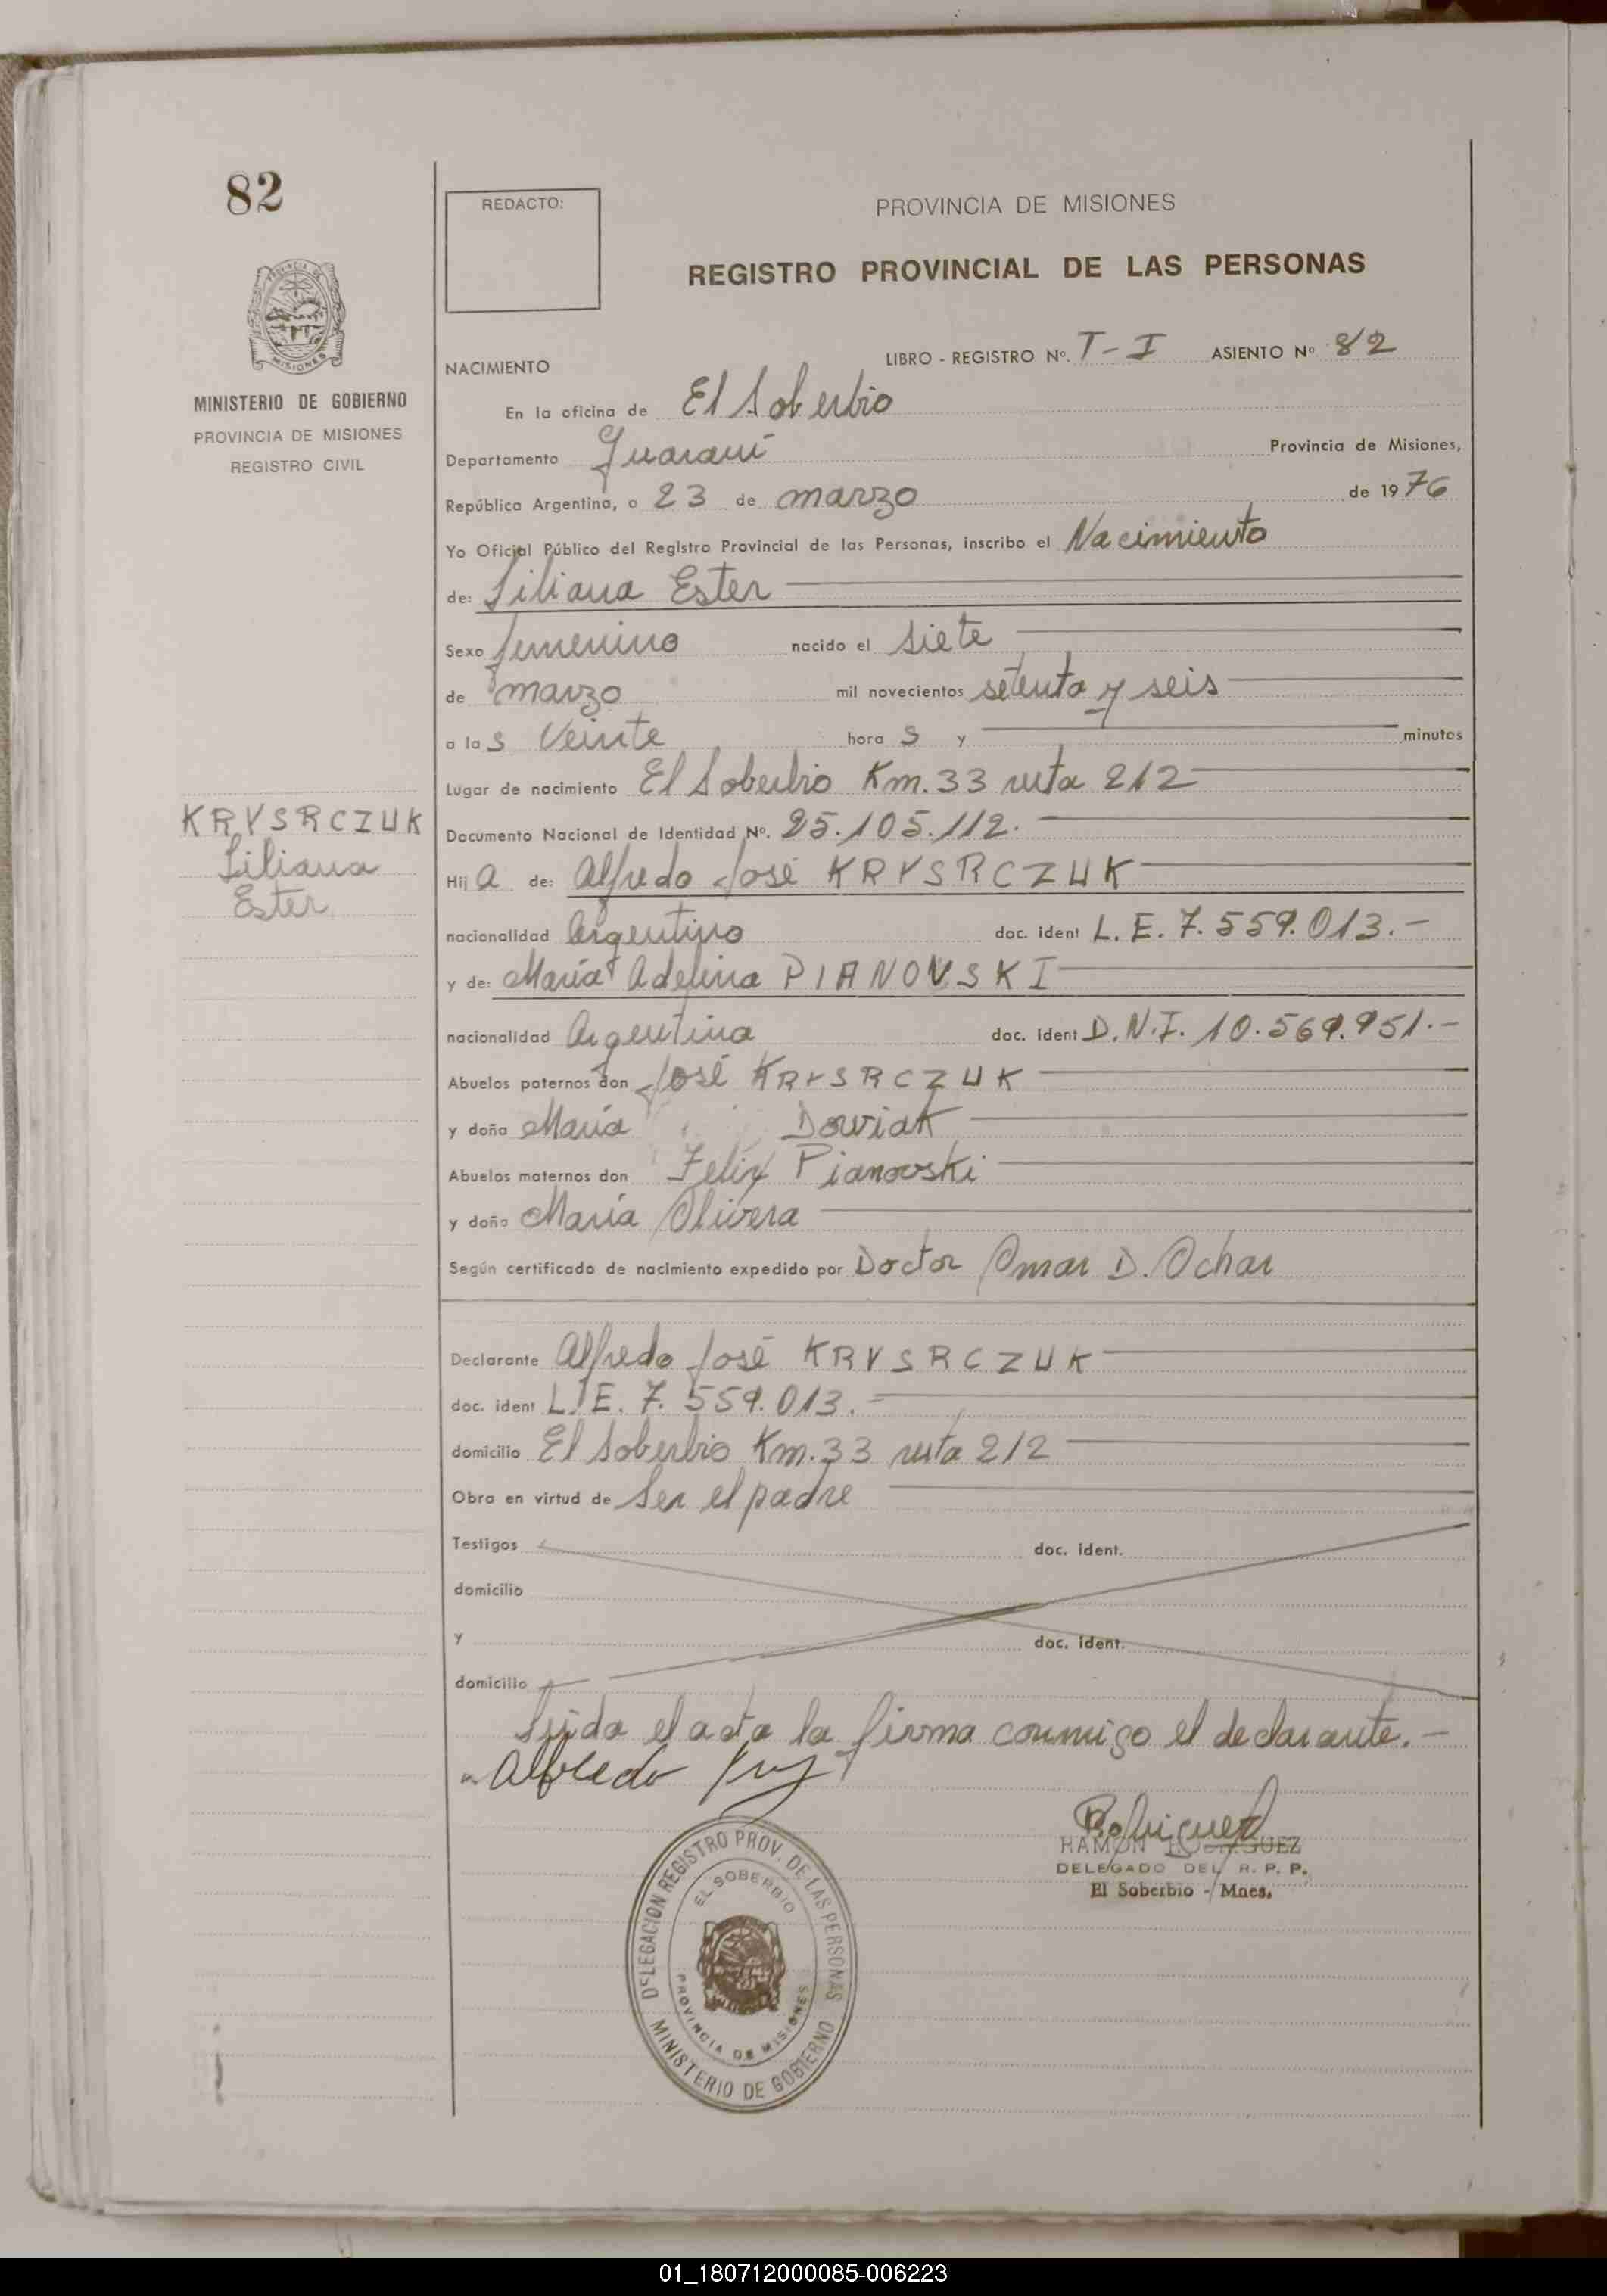 82
PROVINCIA DE
MISIONES
MINISTERIO DE GOBIERNO
PROVINCIA DE MISIONES
REGISTRO CIVIL
REDACTO:
PROVINCIA DE MISIONES
REGISTRO PROVINCIAL DE LAS PERSONAS
NACIMIENTO LIBRO - REGISTRO Nº. T-I ASIENTO Nº 82
En la oficina de El Soberbio
Departamento Guaraní Provincia de Misiones,
República Argentina, a 23 de marzo de 1976
Yo Oficial Público del Registro Provincial de las Personas, inscribo el Nacimiento
de: Liliana Ester
Sexo femenino nacido el siete
de marzo mil novecientos setenta y seis
a las Veinte horas y minutos
Lugar de nacimiento El Soberbio Km. 33 ruta 212
KRYSRCZUK
Liliana
Ester
Documento Nacional de Identidad Nº. 25.105.112.
Hija de: Alfredo José KRYSRCZUK
nacionalidad Argentino doc. ident L.E. 7.559.013.-
y de: María Adelina PIANOVSKI
nacionalidad Argentina doc. ident D.N.I. 10.569.951.-
Abuelos paternos don José KRYSRCZUK
y doña María Dowiak
Abuelos maternos don Felix Pianovski
y doña María Olivera
Según certificado de nacimiento expedido por Doctor Omar D. Ochar
Declarante Alfredo José KRYSRCZUK
doc. ident L.E. 7.559.013.-
domicilio El Soberbio Km. 33 ruta 212
Obra en virtud de Ser el padre
Testigos doc. ident.
domicilio
y doc. ident.
domicilio
Leída el acta la firma conmigo el declarante.-
Alfredo
Rodriguez
RAMON RODRIGUEZ
DELEGADO DEL R. P. P.
El Soberbio - Mnes.
DELEGACION REGISTRO PROV. DE LAS PERSONAS
EL SOBERBIO
PROVINCIA DE MISIONES
MINISTERIO DE GOBIERNO
01_180712000085-006223